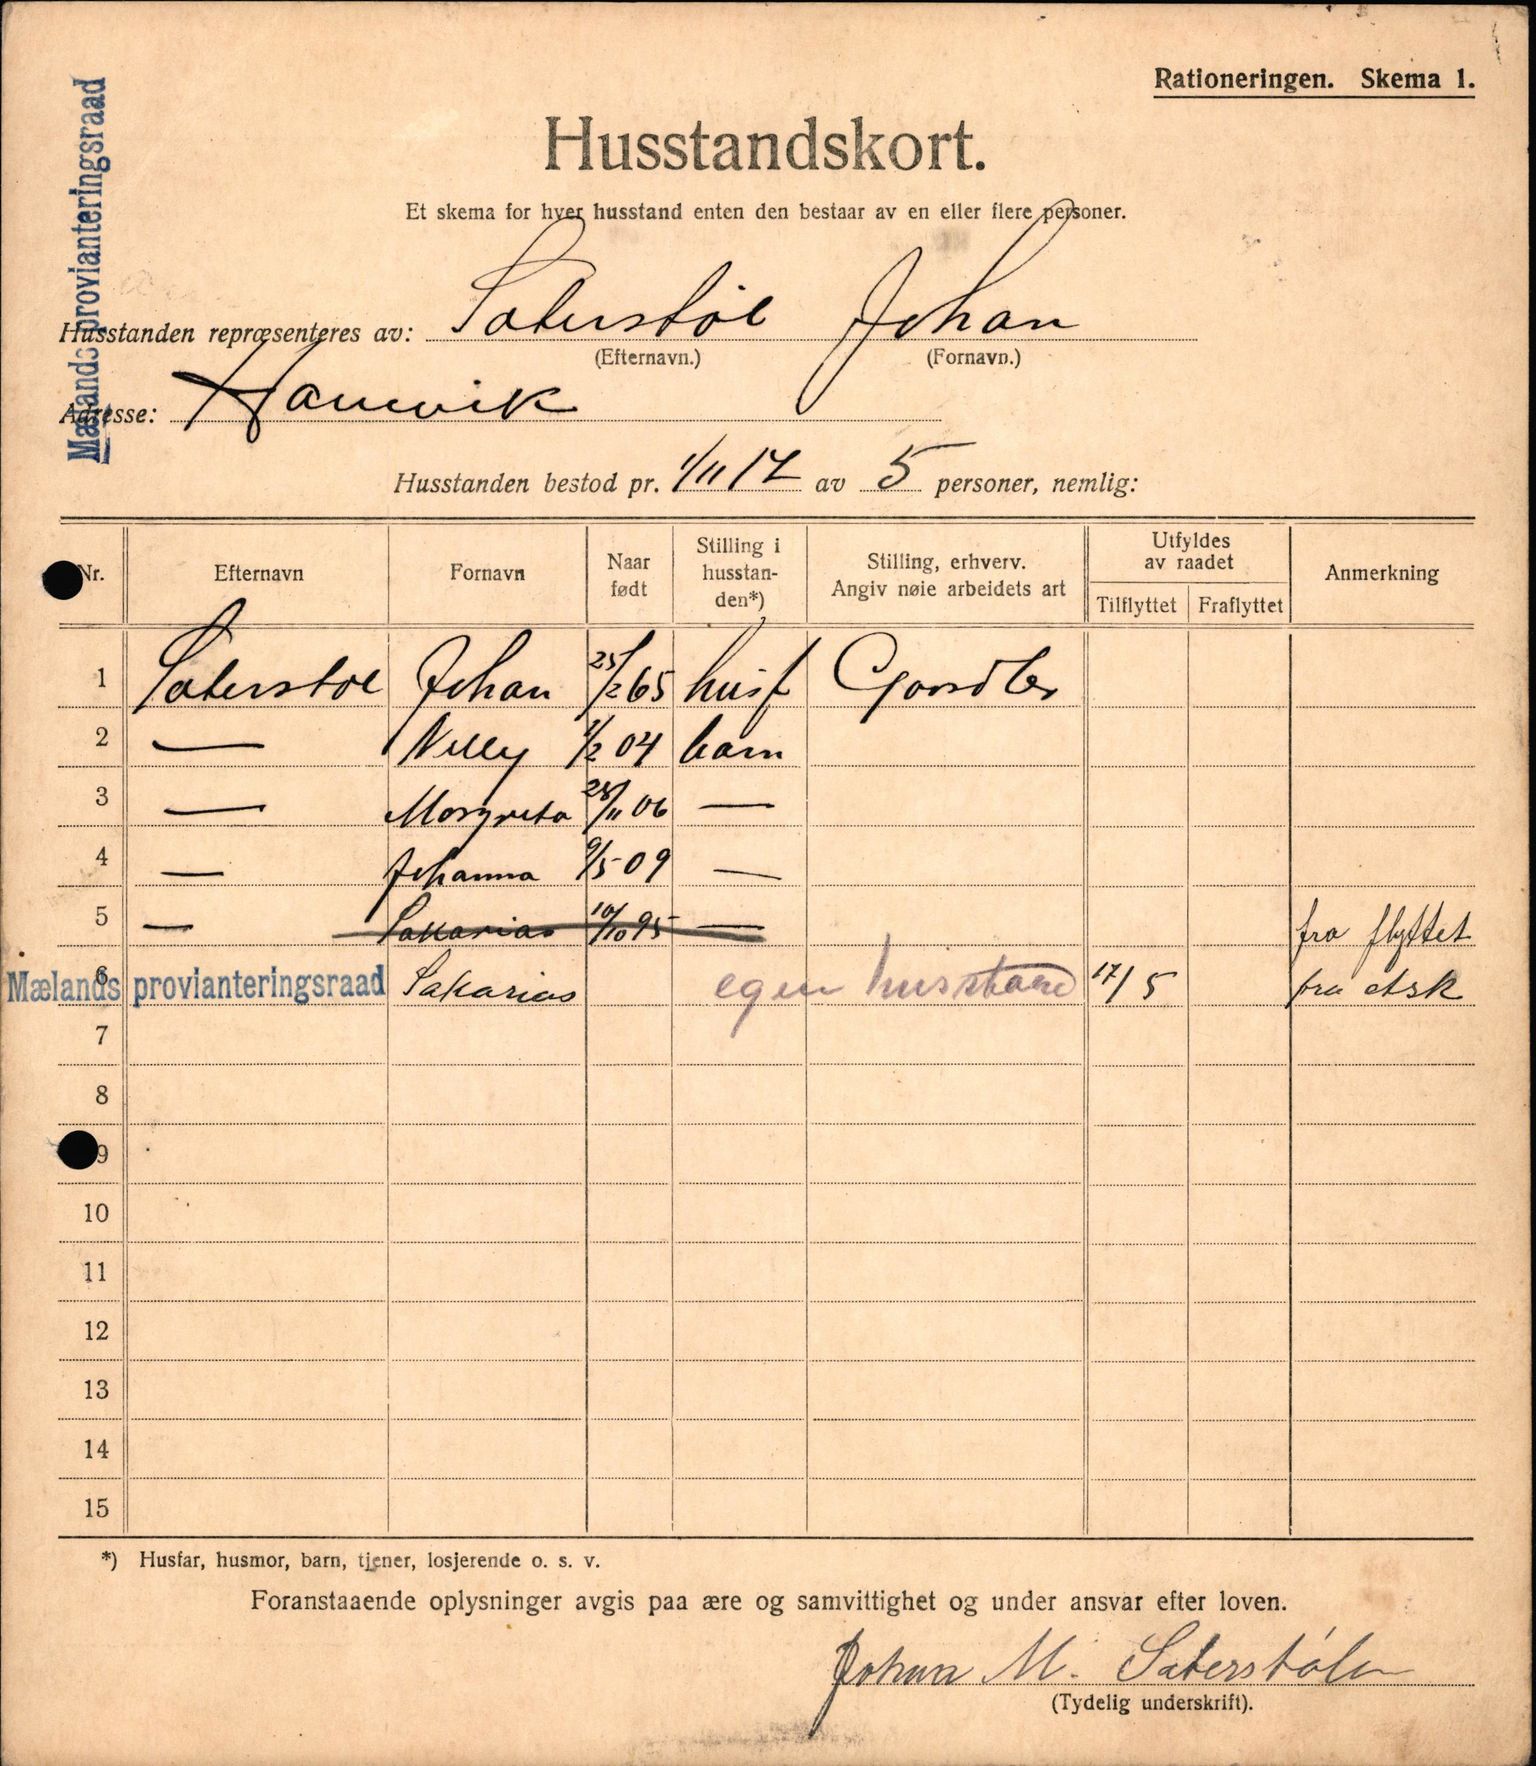 Rationeringen. Skema 1.
Mælands provianteringsraad
Husstandskort.
Et skema for hver husstand enten den bestaar av en eller flere personer.
Husstanden repræsenteres av: Saterstøl Johan
(Efternavn.) (Fornavn.)
Adresse:
Husstanden bestod pr. 1/11 17 av 5 personer, nemlig:
Nr. Efternavn Fornavn Naar født Stilling i husstan-den*) Stilling, erhverv. Angiv nøie arbeidets art Utfyldes av raadet Tilflyttet Fraflyttet Anmerkning
1 Saterstøl Johan 25/2 65 husf
2 — Nelly 1/2 04 barn
3 — Margreta 28/11 06 —
4 — Johanna 9/5 09 —
5 — Sakarias 10/10 95 — fra flyttet
6 Mælands provianteringsraad Sakarias egen husstand 17/5 fra Ask
7
8
9
10
11
12
13
14
15
*) Husfar, husmor, barn, tjener, losjerende o. s. v.
Foranstaaende oplysninger avgis paa ære og samvittighet og under ansvar efter loven.
Johan M. Saterstølen
(Tydelig underskrift).